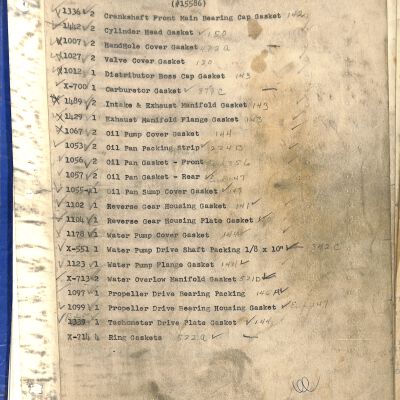 (#15586)
1336 2 Crankshaft Front Main Bearing Cap Gasket 142
1442 2 Cylinder Head Gasket 150
1007 2 HandHole Cover Gasket
1027 2 Valve Cover Gasket 120
1012 1 Distributor Boss Cap Gasket 143
X-700 1 Carburetor Gasket
1489 2 Intake & Exhaust Manifold Gasket 143
1429 1 Exhaust Manifold Flange Gasket 143
1067 2 Oil Pump Cover Gasket 144
1053 2 Oil Pan Packing Strip
1056 2 Oil Pan Gasket - Front
1057 2 Oil Pan Gasket - Rear
1055- 1 Oil Pan Sump Cover Gasket
1102 1 Reverse Gear Housing Gasket 141
1104 1 Reverse Gear Housing Plate Gasket
1178 1 Water Pump Cover Gasket 144
X-551 1 Water Pump Drive Shaft Packing 1/8 x 10" 342 C
1123 1 Water Pump Flange Gasket
X-713 2 Water Overlow Manifold Gasket 521D
1097 1 Propeller Drive Bearing Packing
1099 1 Propeller Drive Bearing Housing Gasket
1339 1 Tachometer Drive Plate Gasket 144
X-714 4 Ring Gaskets 522 A